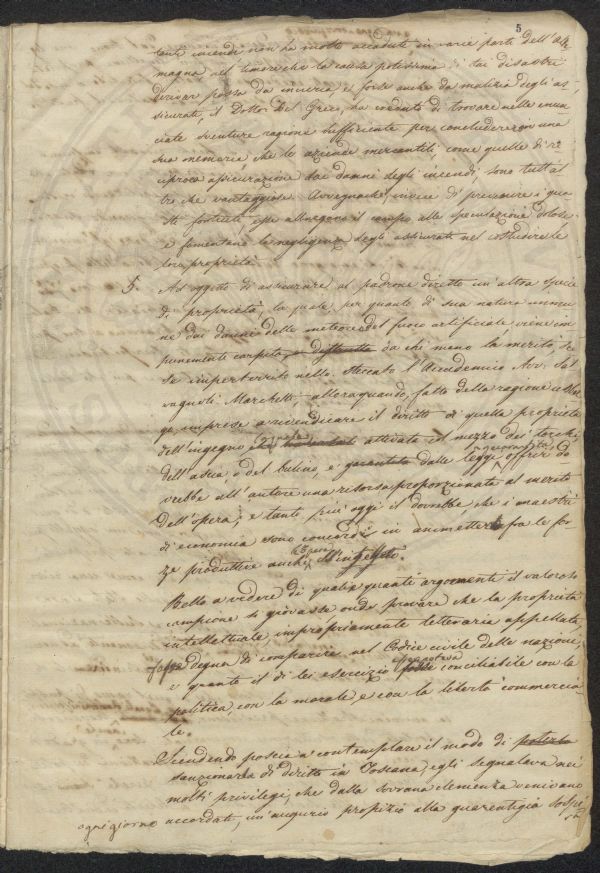 5
tanti incendi non ha molto accaduti in varie parti dell'Ale
magna nel timore che la causa potissima di tai disastri
derivar possa da incuria e forse anche da malizia degli as
sicurati, il Dottor Del Greco, ha creduto di trovare nelle enun
ciate sventure ragione sufficiente per concludere in una
sua memoria, che le aziende mercantili come quelle di re
ciproca assicurazione dai danni degli incendi, sono tutt'al
tro che vantaggiose. Avvegnachè, invece di prevenire i qua
sti fortuiti, esse allargano il campo alle speculazioni dolose
e fomentano la negligenza degli assicurati nel custodire le
loro proprietà.
5. Ad oggetto di assicurare al padrone diretto un'altra specie
di proprietà, la quale, per quanto di sua natura immu
ne dai danni delle meteore e del fuoco artificiale viene im
punemente carpita, e distrutta da chi meno la merita, sce
se imperterrito nello steccato l'Accademico Avv. Sal
vagnoli Marchetti allora quando, fatto della ragione usber
go, imprese a rivendicare il diritto di quella proprietà
dell'ingegno che attivata col mezzo dei torchi
dell'ascia, o del bulino, e garantita dalle leggi offrir do
vrebbe all'autore una risorsa proporzionata al merito
dell'opera; e tanto più oggi il dovrebbe che i maestri
di economia sono concordi in ammettere fra le for
ze produttive anche l'ingegno.
Bello a vedere di quali e quanti argomenti il valoroso
campione si giovasse onde provare che la proprietà
intellettuale, impropriamente letteraria appellata,
fosse degna di comparire nel Codice civile delle nazioni,
e quanto il di lei esercizio fosse conciliabile con la
politica, con la morale, e con la libertà commercia
le.
Scendendo poscia a contemplare il modo di poterla
sanzionare di diritto in Toscana, egli segnalava nei
molti privilegi, che dalla sovrana clemenza venivano
ogni giorno accordati, un'augurio propizio alla guarentigia